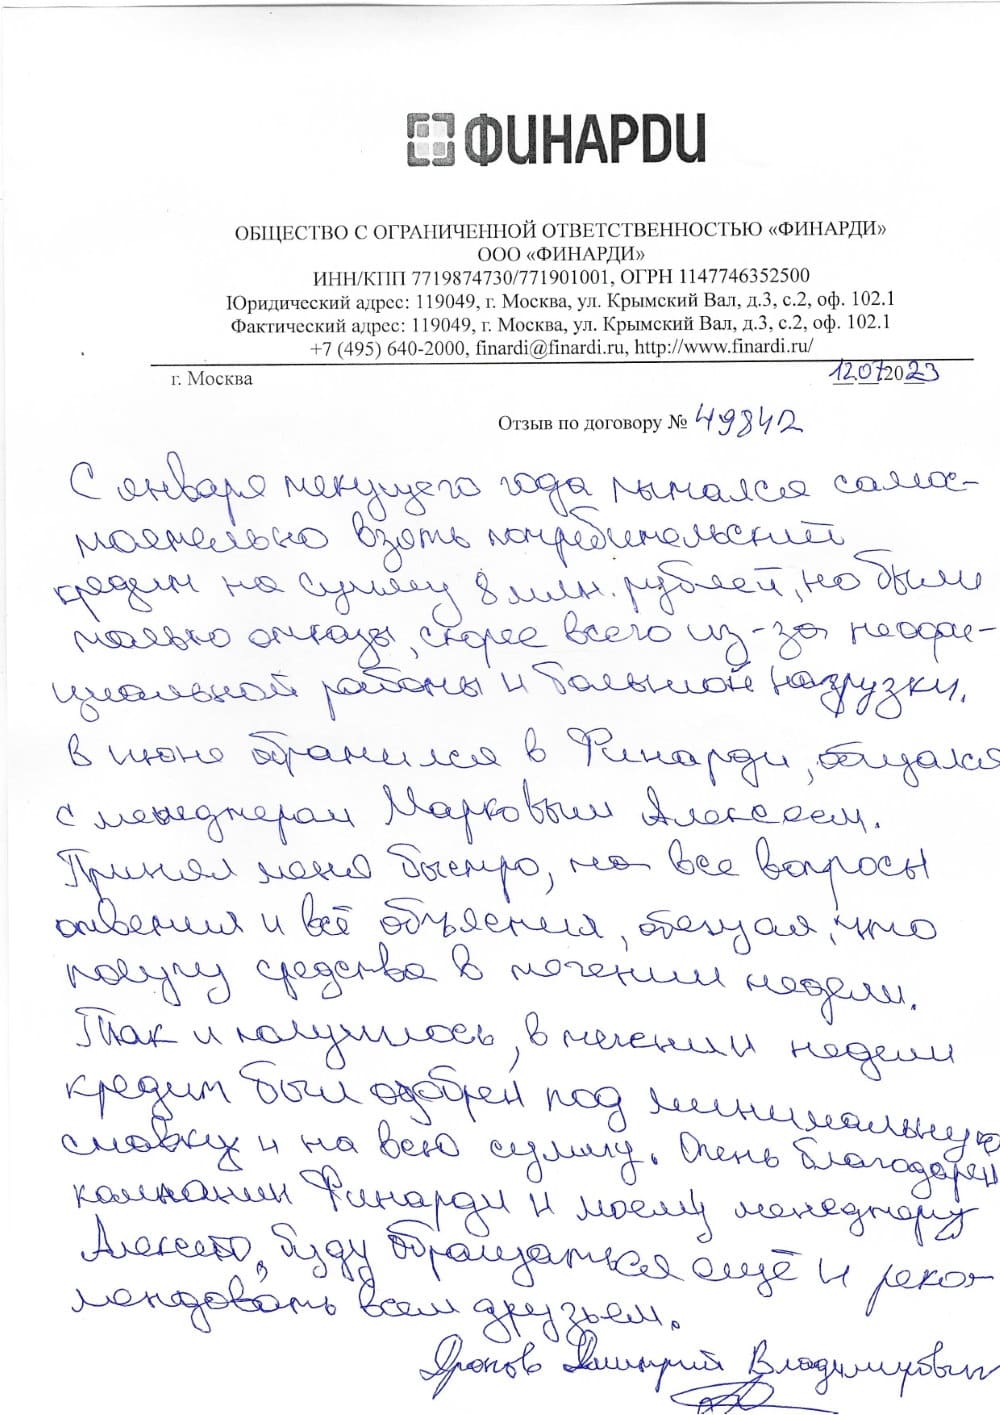 ФИНАРДИ
ОБЩЕСТВО С ОГРАНИЧЕННОЙ ОТВЕТСТВЕННОСТЬЮ «ФИНАРДИ»
ООО «ФИНАРДИ»
ИНН/КПП 7719874730/771901001, ОГРН 1147746352500
Юридический адрес: 119049, г. Москва, ул. Крымский Вал, д.3, с.2, оф. 102.1
Фактический адрес: 119049, г. Москва, ул. Крымский Вал, д.3, с.2, оф. 102.1
+7 (495) 640-2000, finardi@finardi.ru, http://www.finardi.ru/
г. Москва 12.07.2023
Отзыв по договору № 49842
С января текущего года пытался самос-
тоятельно взять потребительский
кредит на сумму 8 млн. рублей, но были
только отказы, скорее всего из-за неофи-
циальной работы и большой нагрузки.
В июне обратился в Финарди, общался
с менеджером Марковым Алексеем.
Принял меня быстро, на все вопросы
ответил и всё объяснил, обещал, что
получу средства в течении недели.
Так и получилось, в течении недели
кредит был одобрен под минимальную
ставку и на всю сумму. Очень благодарен
компании Финарди и моему менеджеру
Алексею, буду обращаться ещё и реко-
мендовать всем друзьям.
Дмитрий Владимирович